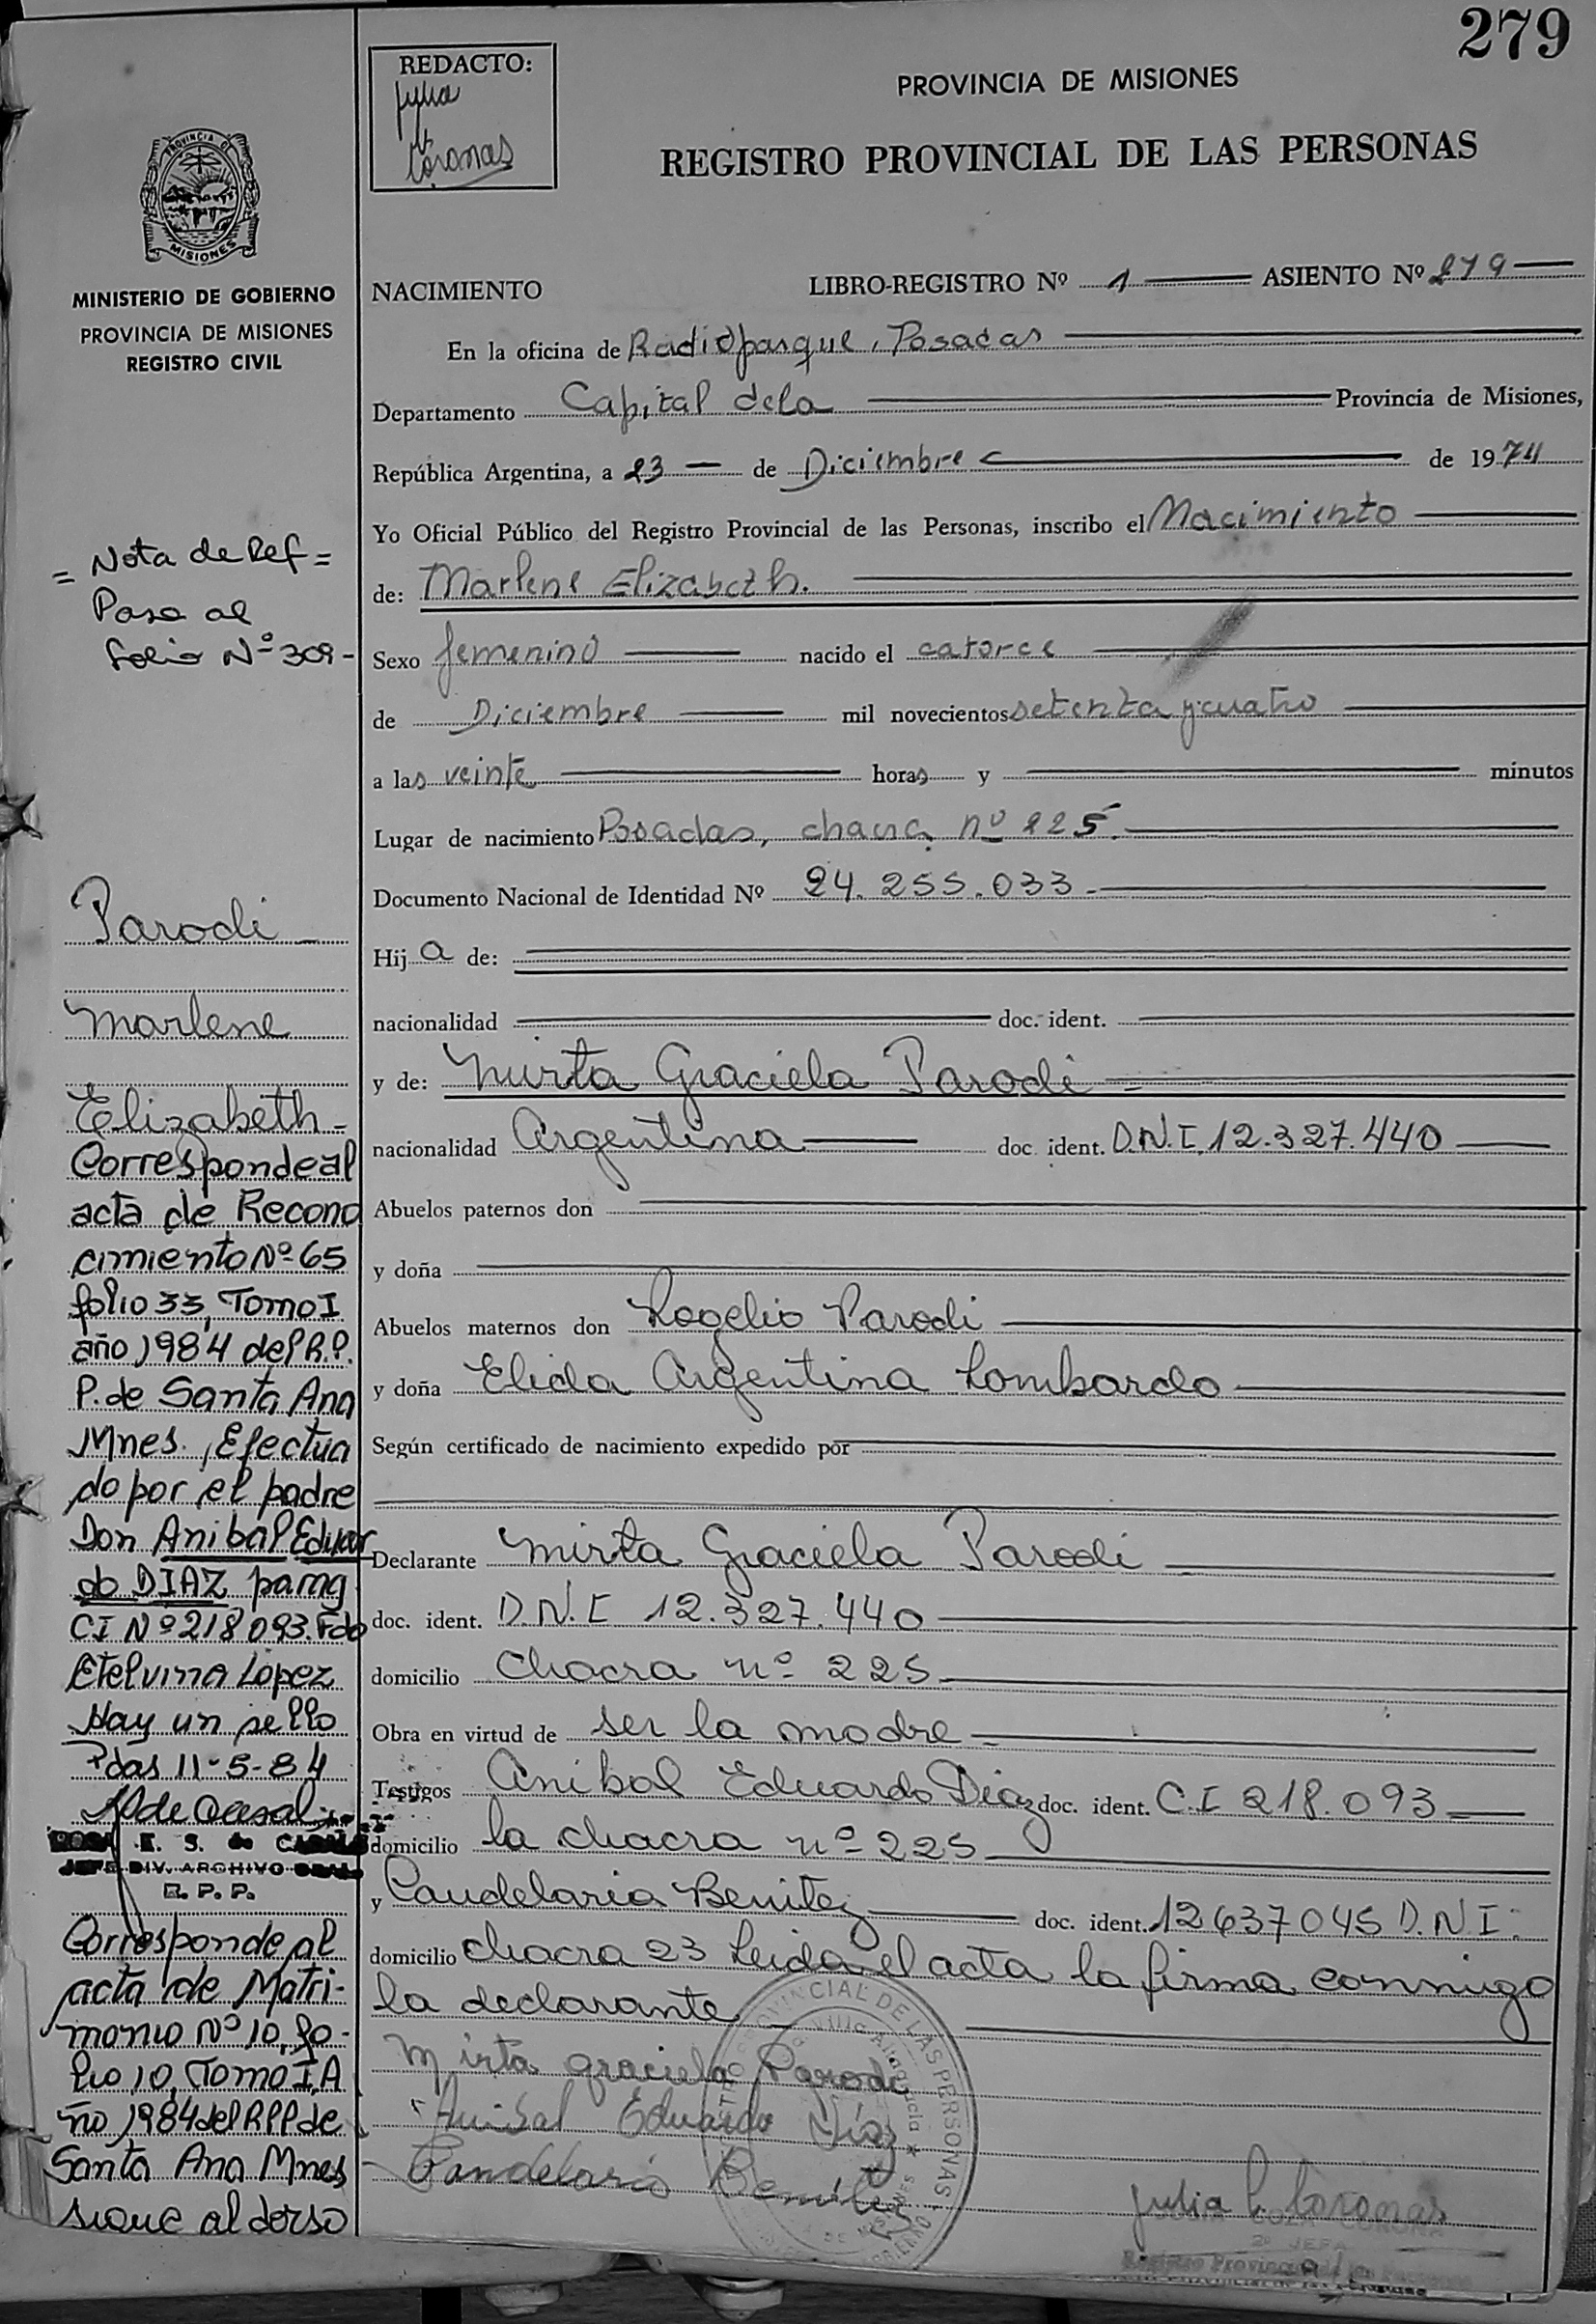 279
REDACTO:
Julia
Coronas
PROVINCIA DE MISIONES
REGISTRO PROVINCIAL DE LAS PERSONAS
PROVINCIA DE
MISIONES
MINISTERIO DE GOBIERNO
PROVINCIA DE MISIONES
REGISTRO CIVIL
NACIMIENTO LIBRO-REGISTRO Nº 1 ASIENTO Nº 279
En la oficina de Radioparque, Posadas
Departamento Capital de la Provincia de Misiones,
República Argentina, a 23 de Diciembre de 1974
Yo Oficial Público del Registro Provincial de las Personas, inscribo el Nacimiento
de: Marlene Elizabeth.
Sexo femenino nacido el catorce
de Diciembre mil novecientos setenta y cuatro
a las veinte horas y minutos
Lugar de nacimiento Posadas, chacra nº 225.
Documento Nacional de Identidad Nº 24.255.033-
Hij a de:
nacionalidad doc. ident.
y de: Mirta Graciela Parodi
nacionalidad Argentina doc ident. D.N.I. 12.327.440
Abuelos paternos don
y doña
Abuelos maternos don Rogelio Parodi
y doña Elida Argentina Lombardo
Según certificado de nacimiento expedido por
Declarante Mirta Graciela Parodi
doc. ident. D.N.I 12.327.440
domicilio chacra nº 225
Obra en virtud de ser la madre
Testigos Anibal Eduardo Diaz doc. ident. C.I 218.093
domicilio la chacra nº 225
y Candelaria Benitez doc. ident. 12637045 D.N.I.
domicilio chacra 23 Leida el acta la firma conmigo
la declarante
Mirta graciela Parodi
Anibal Eduardo Díaz
Candelaria Benitez
Julia Coronas
2º JEFA
Registro Provincial de las Personas
PROVINCIAL DE LAS PERSONAS
= Nota de Ref =
Pasa al
folio Nº 309-
Parodi
Marlene
Elizabeth-
Corresponde al
acta de Recono
cimiento Nº 65
folio 33, Tomo I
año 1984 del R.P.
P. de Santa Ana
Mnes., Efectua
do por el padre
Don Anibal Eduar
do DIAZ
CI Nº 218093. Fdo
Etelvina López
Hay un sello
Pdas 11-5-84
ROSA E. S. de CASAL
JEFE DIV. ARCHIVO GRAL
R. P. P.
Corresponde al
acta de Matri-
monio Nº 10, fo-
lio 10, Tomo I, A
ño 1984 del RPP de
Santa Ana Mnes
sigue al dorso